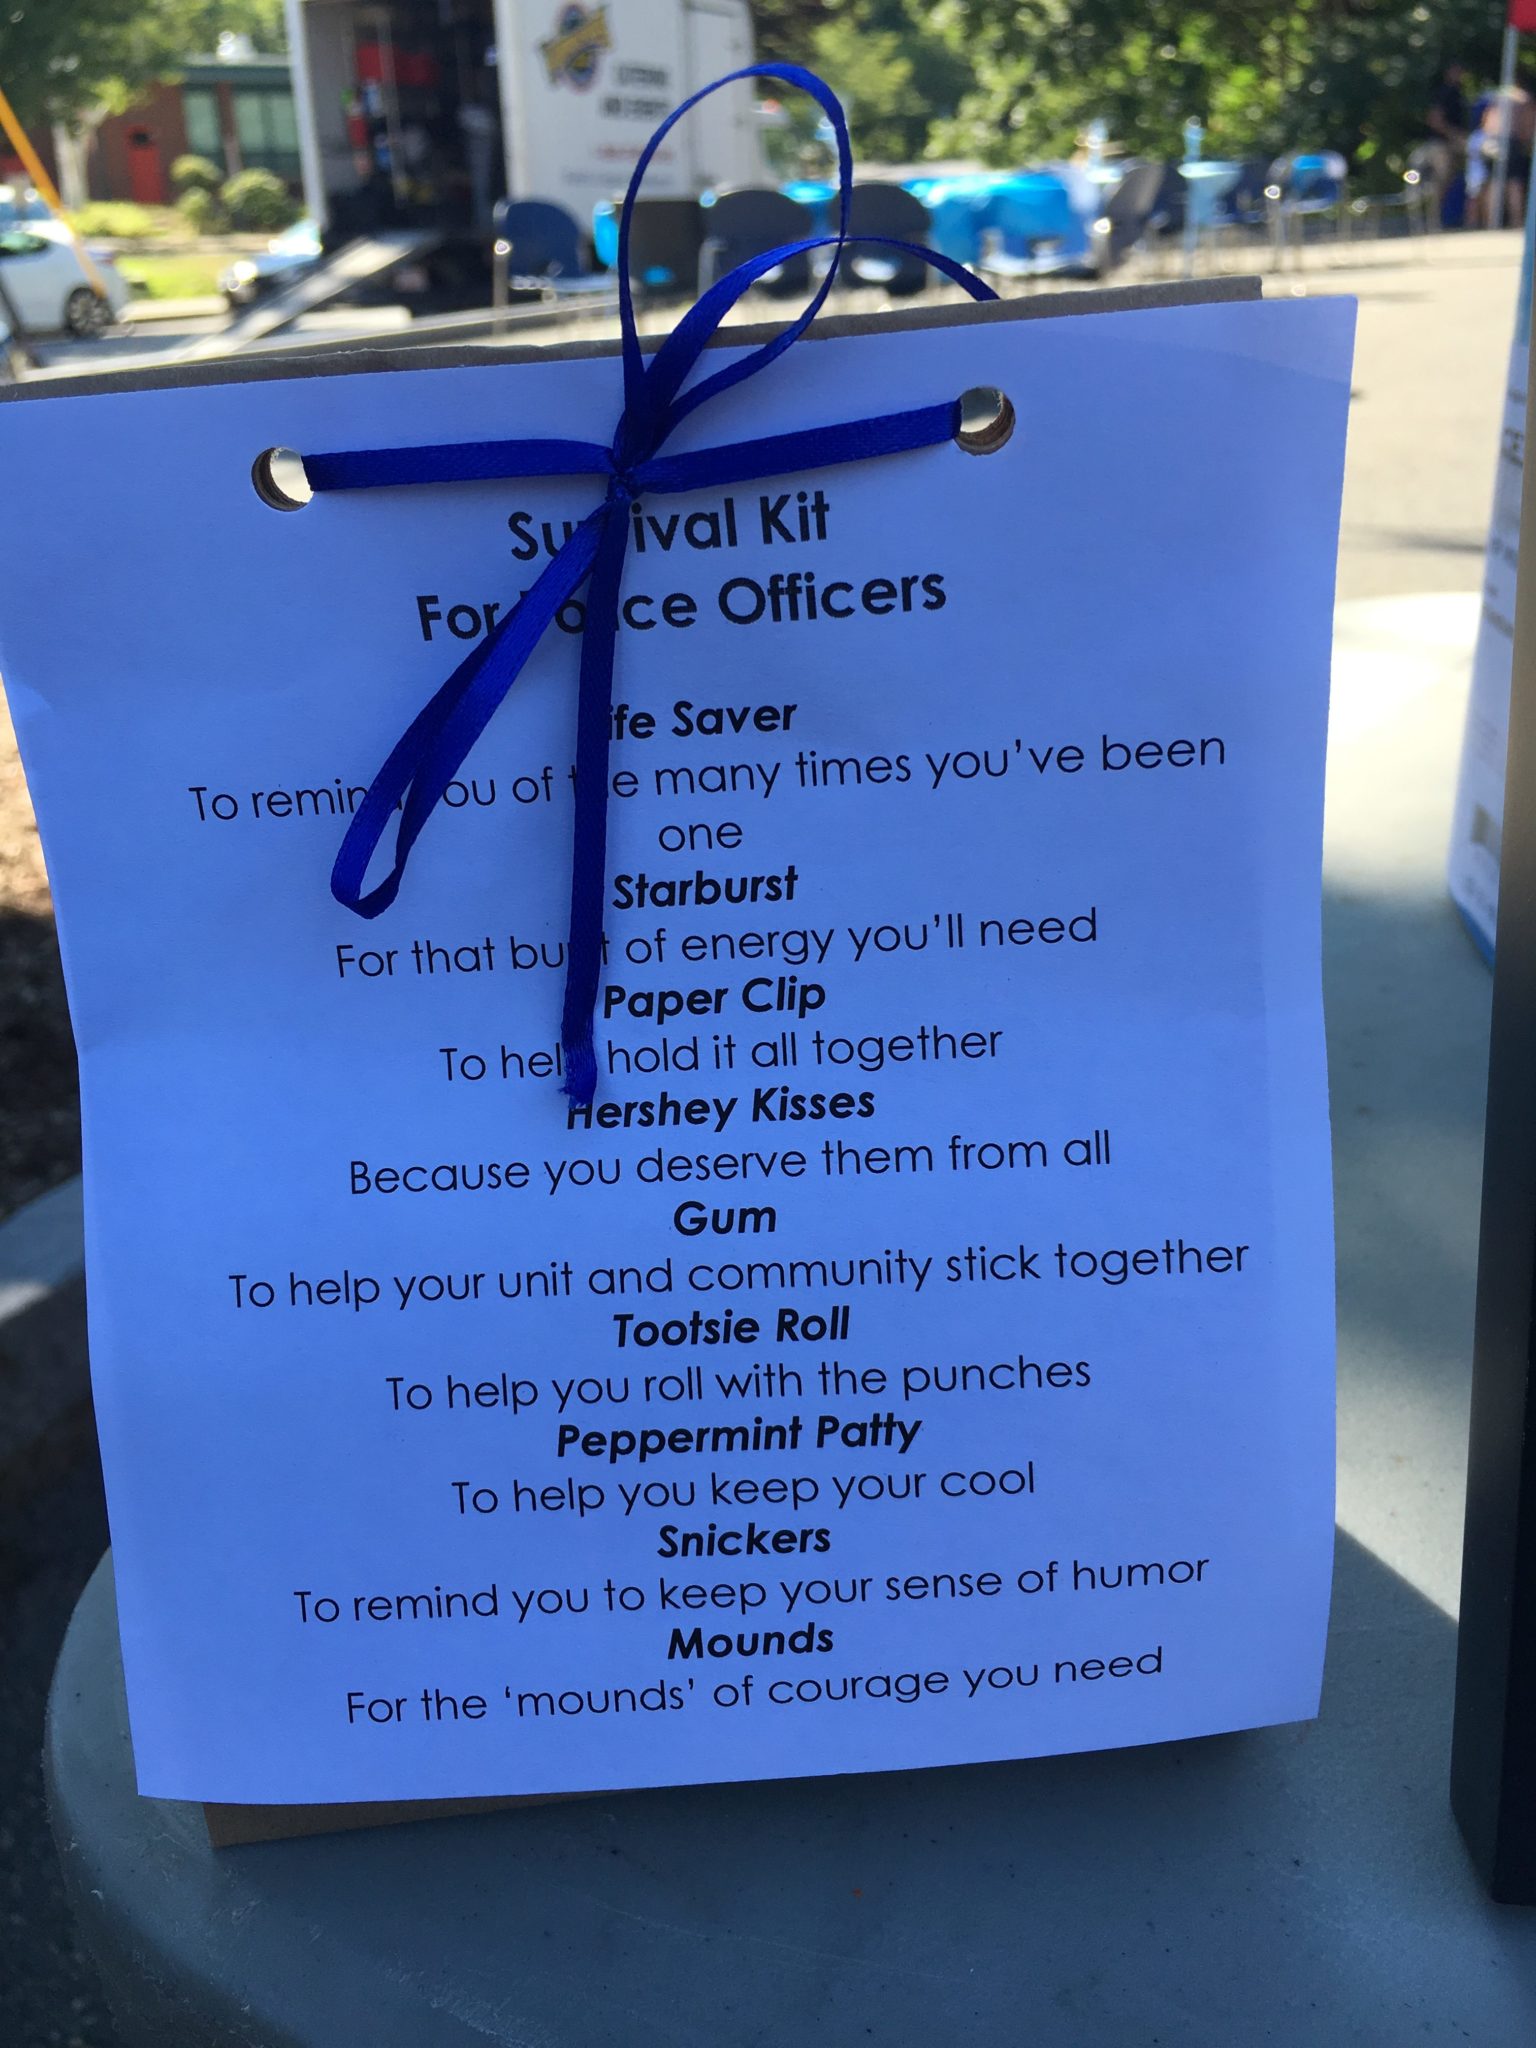 Survival Kit
For Police Officers
Life Saver
To remind you of the many times you've been
one
Starburst
For that burst of energy you'll need
Paper Clip
To help hold it all together
Hershey Kisses
Because you deserve them from all
Gum
To help your unit and community stick together
Tootsie Roll
To help you roll with the punches
Peppermint Patty
To help you keep your cool
Snickers
To remind you to keep your sense of humor
Mounds
For the ‘mounds’ of courage you need